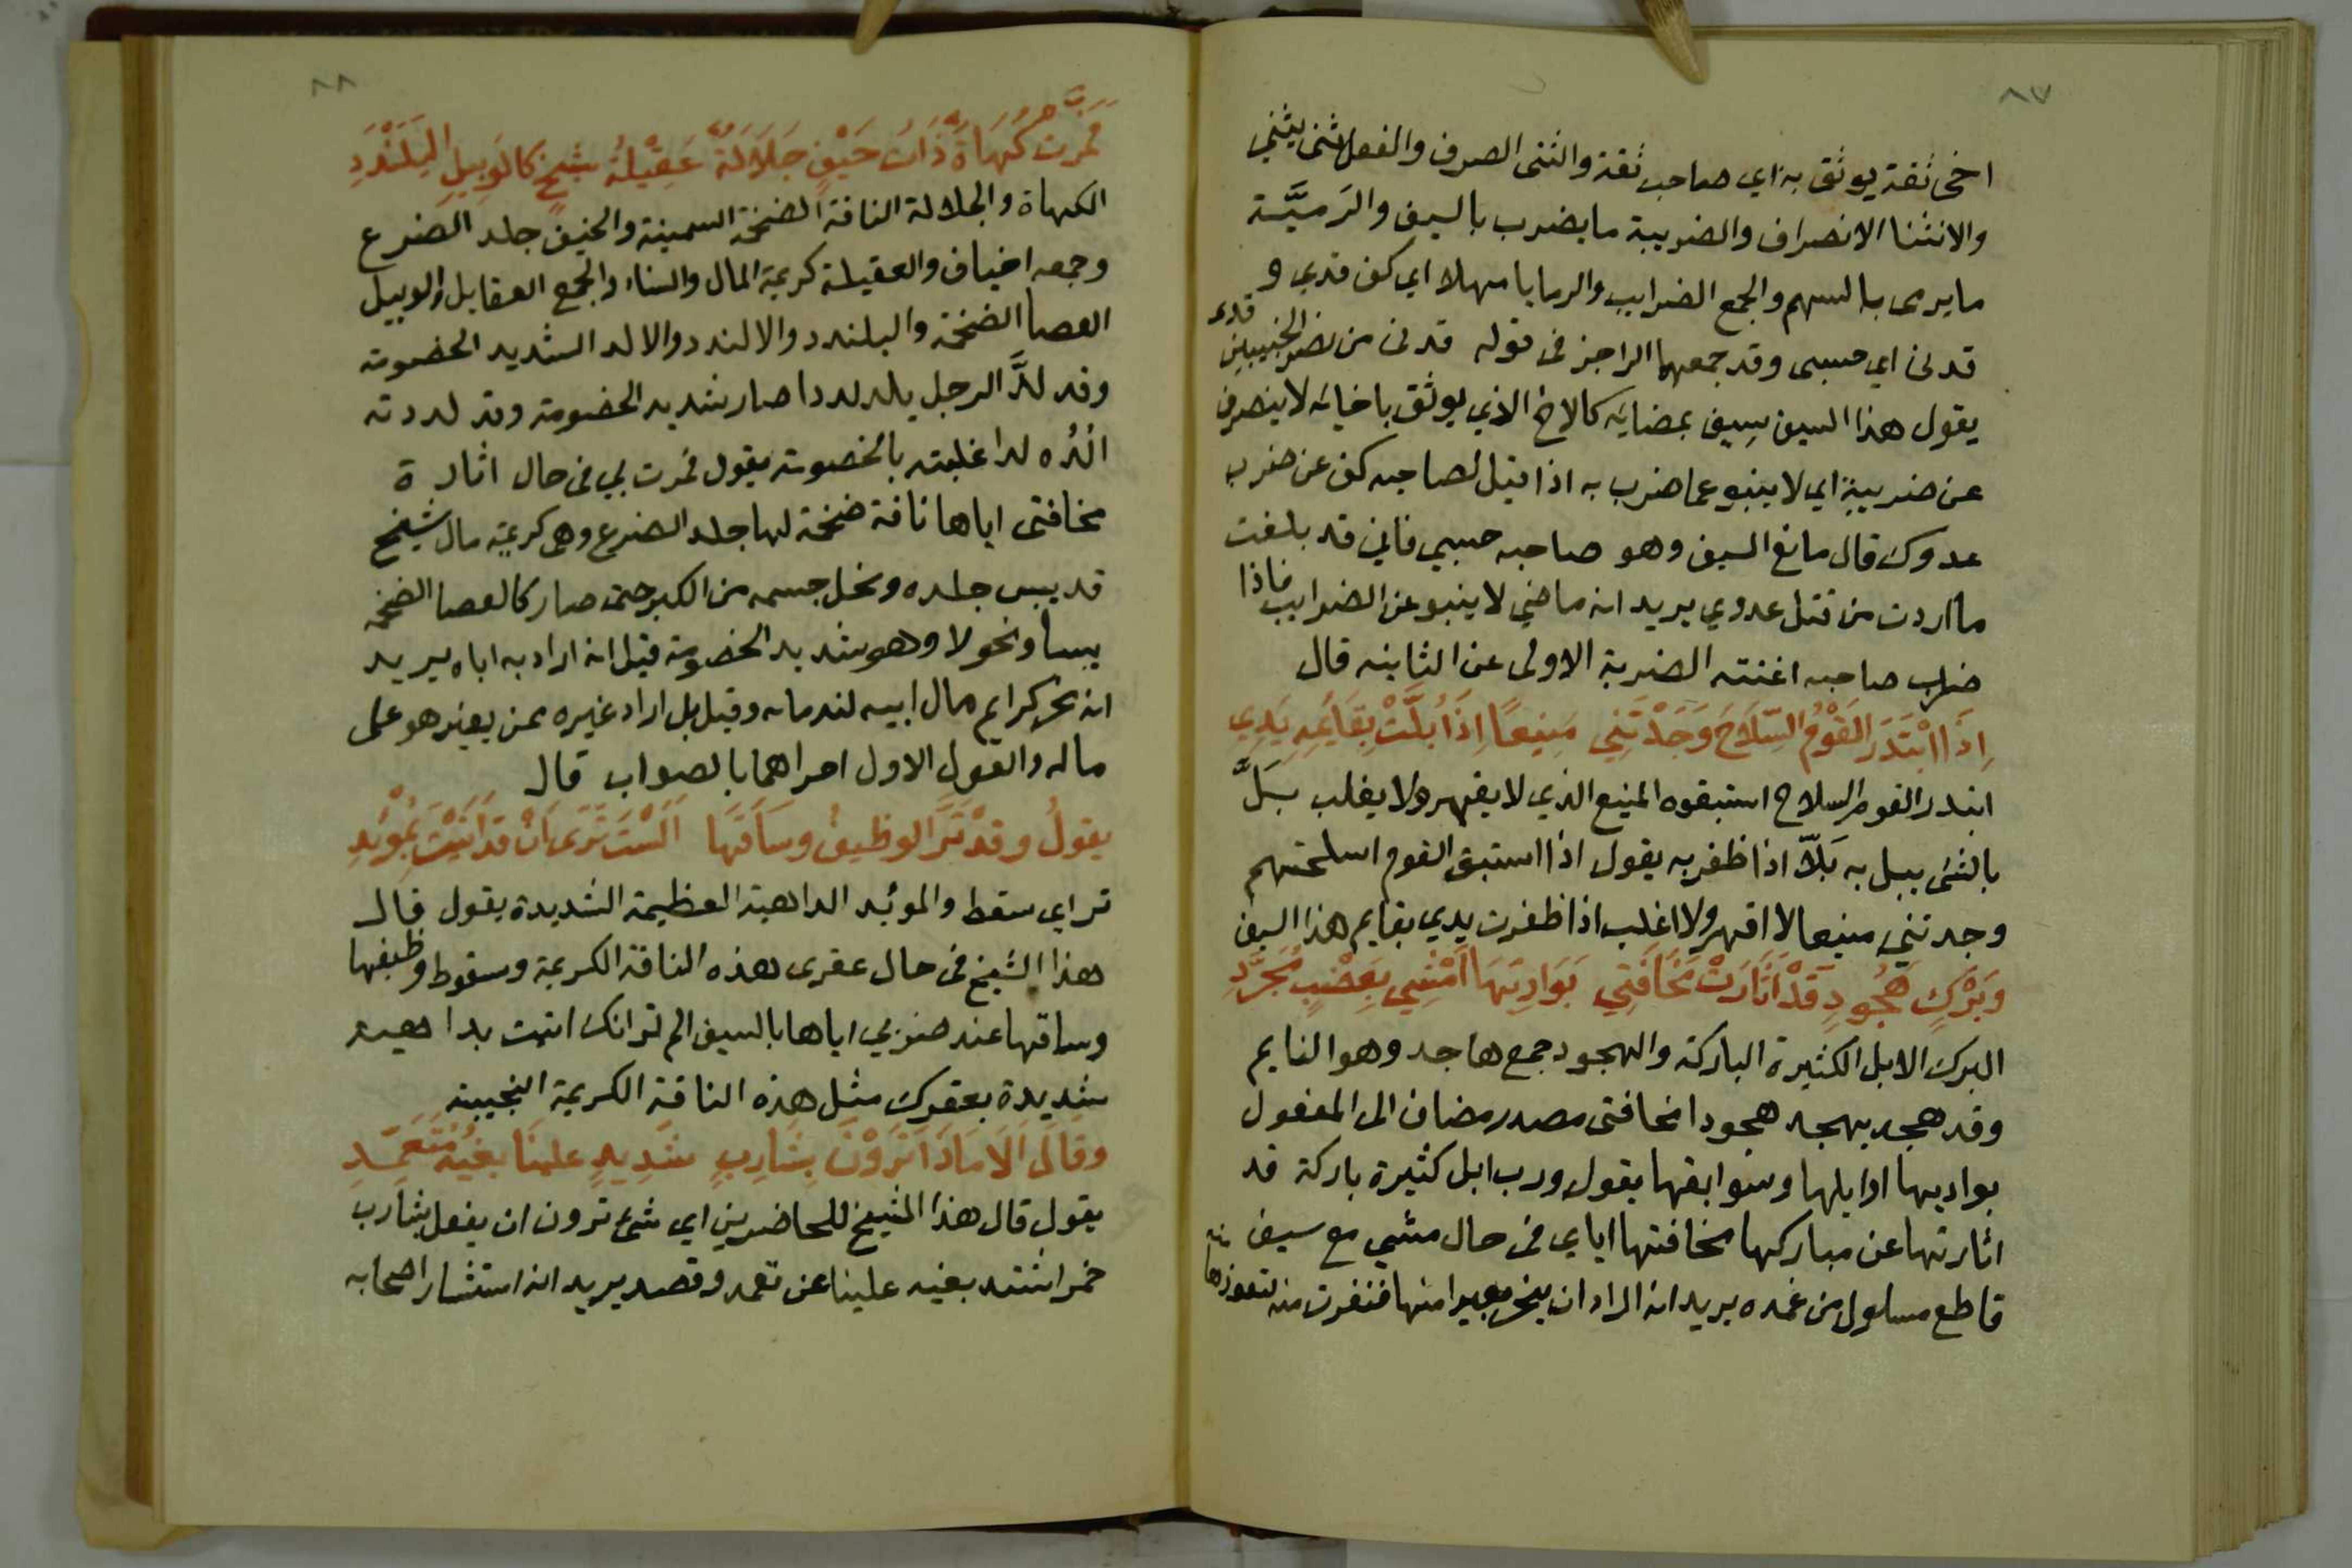 ٨٧
اخى ثقة يوثق به اي صاحب ثقة والثنى الصرف والفعل ثنى يثني
والانثنا الانصراف والضريبة ما يضرب بالسيف والرَميَّة
ما يرمى بالسهم والجمع الضرايب والرمايا مهلا اي كف قدي و
قدنى اي حسبى وقد جمعهما الراجز فى قوله قدنى من نصر الخبيبين قدى
يقول هذا السيف سيف بمضايه كالاخ الذي يوثق باخايه لا ينصرف
عن ضريبة اي لا ينبو عما ضرب به اذا قيل لصاحبه كف عن ضرب
عدوك قال مانع السيف وهو صاحبه حسبي فاني قد بلغت
ما اردت من قتل عدوي يريد انه ماضي لا ينبو عن الضرايب فاذا
ضرب صاحبه اغنته الضربة الاولى عن الثانيه قال
اِذَا ابْتَدَرَ القَوْمُ السِّلَاحَ وَجَدْتَنِي مَنِيعًا اِذَا بَلَّتْ بِقَايمِهِ يَدِي
ابتدر القوم السلاح استبقوه المنيع الذي لا يقهر ولا يغلب بَلَّ
بالشئ يبل به بَلّاً اذا ظفر به يقول اذا استبق القوم اسلحتهم
وجدتني منيعا لا اقهر ولا اغلب اذا ظفرت يدي بقايم هذا السيف
وَبَرْكٍ هُجُودٍ قَدْ اَثَارَتْ مَخَافَتِي بَوَادِيَهَا اَمْشِي بِعَضْبٍ مُجَرَّدِ
البرك الابل الكثيرة الباركة والهجود جمع هاجد وهو النايم
وقد هجد يهجد هجودا مخافتى مصدر مضاف الى المفعول
بواديها اوايلها وسوابقها يقول ورب ابل كثيرة باركة قد
اثارتها عن مباركها مخافتها اياي فى حال مشي مع سيف
قاطع مسلول من غمده يريد انه اراد ان ينحر بعيرا منها فنفرت منه لتعوذها
منه
٨٨
فَمَرَّتْ كَهَاةٌ ذَاتُ خَيْفٍ جَلَالَةٌ عَقِيْلَةُ شيخٍ كَالوَبِيلِ اليَلَنْدَدِ
الكهاة والجلالة الناقة الضخمة السمينة والخيف جلد الضرع
وجمعه اخياف والعقيلة كريمة المال والنساء والجمع العقايل والوبيل
العصا الضخمة واليلندد والالندد والالد الشديد الخصومة
وقد لدَّ الرجل يلد لددا صار شديد الخصومة وقد لددته
الُدُّه لدا غلبته بالخصومة يقول فمرت بي فى حال اثارة
مخافتى اياها ناقة ضخمة لها جلد الضرع وهى كريمة مال شيخ
قد يبس جلده ونحل جسمه من الكبر حتى صار كالعصا الضخمة
يبسا ونحولا وهو شديد الخصومة قيل انه اراد به اباه يريد
انه نحر كرايم مال ابيه لندمانه وقيل بل اراد غيره ممن يغير هو على
ماله والقول الاول احراهما بالصواب قال
يقولُ وقدْ تَرَّ الوظيفُ وسَاقُهَا اَلَسْتَ تَرَى اَنْ قَدْ اَتَيْتَ بِمُؤْيِدِ
تر اي سقط والمؤيد الداهية العظيمة الشديدة يقول قال
هذا الشيخ فى حال عقرى هذه الناقة الكريمة وسقوط وظيفها
وساقها عند ضربي اياها بالسيف الم تر انك اتيت بداهية
شديدة بعقرك مثل هذه الناقة الكريمة النجيبة
وقَالَ اَلَا مَاذَا تَرَوْنَ بِشَارِبٍ شَدِيدٍ علينَا بغيُهُ مُتَعَمِّدِ
يقول قال هذا الشيخ للحاضرين اي شئ ترون ان يفعل بشارب
خمر اشتد بغيه علينا عن تعمد وقصد يريد انه استشار اصحابه